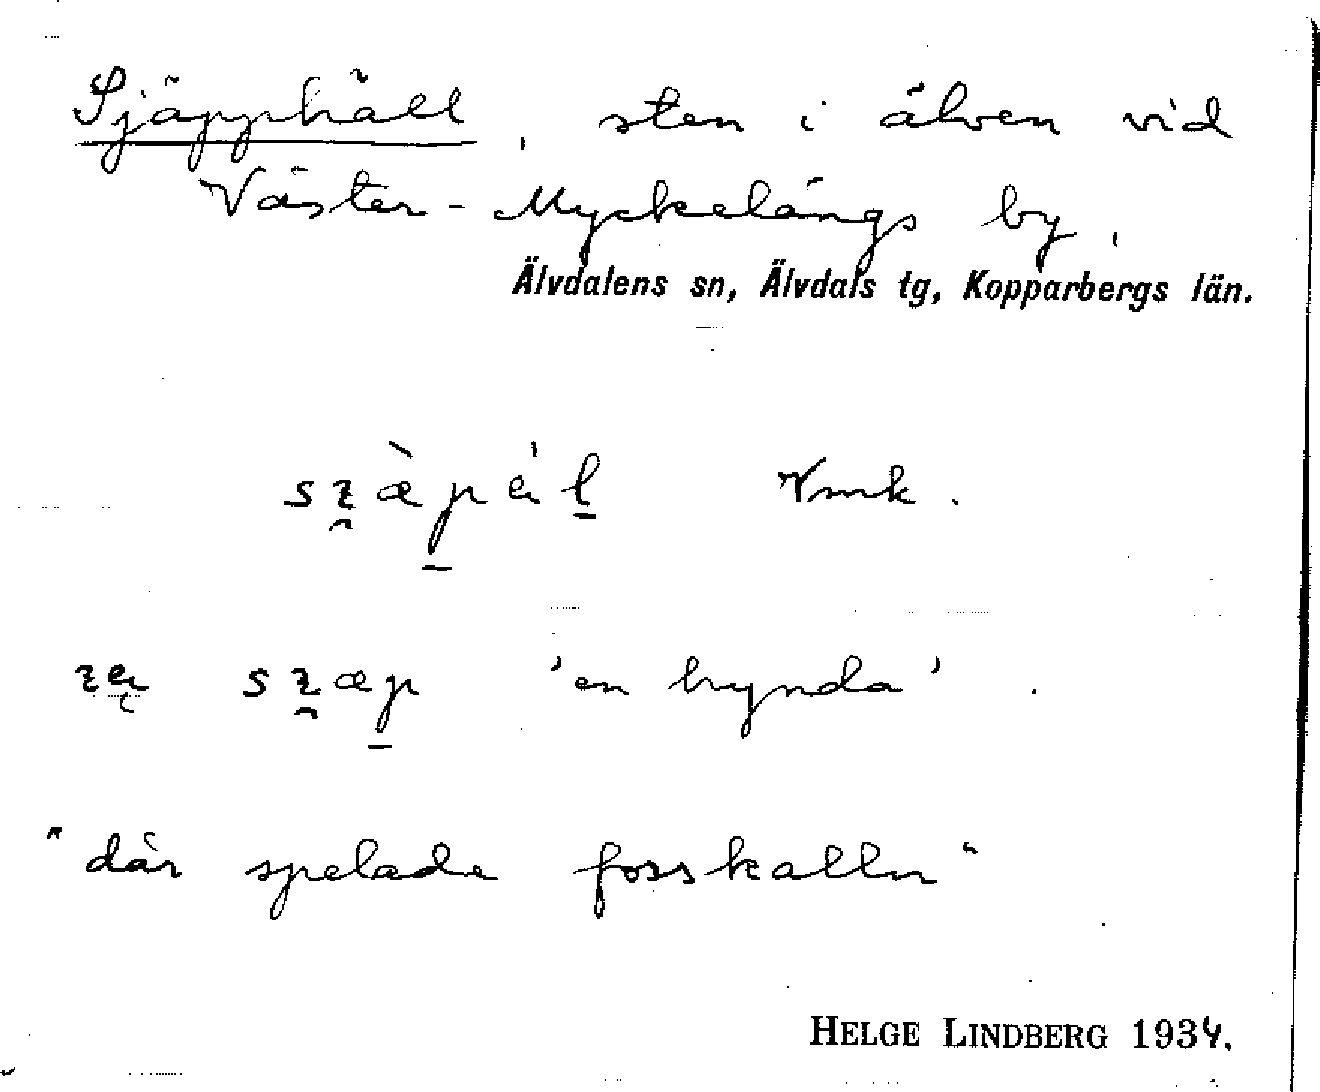 Sjäpphäll, sten i älven vid
Väster-Myckelängs by,
Älvdalens sn, Älvdals tg, Kopparbergs län.
Vmk.
'en hynda'.
"där spelade fosskalln"
HELGE LINDBERG 1934.